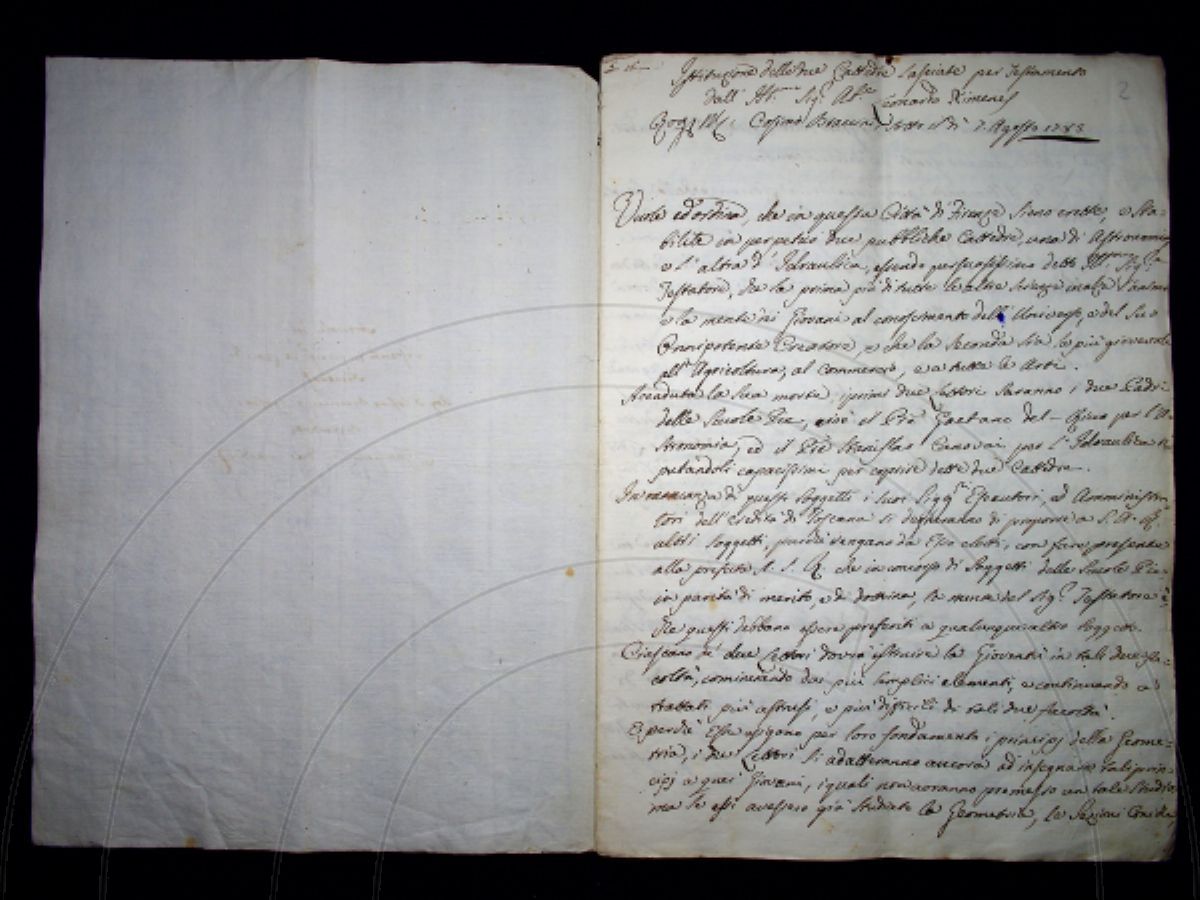 2
Istituzione delle due Cattedre lasciate per Testamento
dall' Ill.mo Sig.r Ab.e Leonardo Ximenes
Cosimo Braccini sotto il dì 7. Agosto 1783
Vuole ed ordina, che in questa Città di Firenze sieno erette, e sta-
bilite in perpetuo due pubbliche Cattedre, una di Astronomia
e l'altra d'Idraulica, essendo persuasissimo detto Ill.mo Sig.r
Testatore, che la prima più di tutte le altre scienze inalza l'animo
e la mente dei Giovani al conoscimento dell'Universo, e del Suo
Onnipotente Creatore, e che la seconda sia la più giovevole
all'Agricoltura, al commercio, e a tutte le Arti.
Accaduta la sua morte i primi due Lettori saranno i due Padri
delle Scuole Pie, cioè il Pre Gaetano del-Ricco per l'A-
stronomia, ed il Pre Stanislao Canovai per l'Idraulica re-
putandoli capacissimi per coprire dette due Cattedre.
In mancanza di questi soggetti i suoi Sigg.ri Esecutori, ed Amministra-
tori dell'eredità di Toscana si degneranno di proporre a S. A. R.
altri soggetti, perchè vengano da Essa eletti, con fare presente
alla prefata A. S. R. che in concorso di Soggetti delle Scuole Pie
in parità di merito, e di dottrina, la mente del Sig.r Testatore è
che questi debbano essere preferiti a qualunque altro soggetto.
Ciascuno de' due Lettori dovrà istruire la Gioventù in tali due fa-
coltà, cominciando dai più semplici elementi, e continuando a'
trattati più astrusi, e più difficili di tali due facoltà.
E perchè Esse esigono per loro fondamento i principj della Geome-
tria, i due Lettori si adatteranno ancora ad insegnare tali prin-
cipj a quei Giovani, i quali non avranno premesso un tale studio
ma se essi avessero già studiato la Geometria, le Sezioni Coniche,